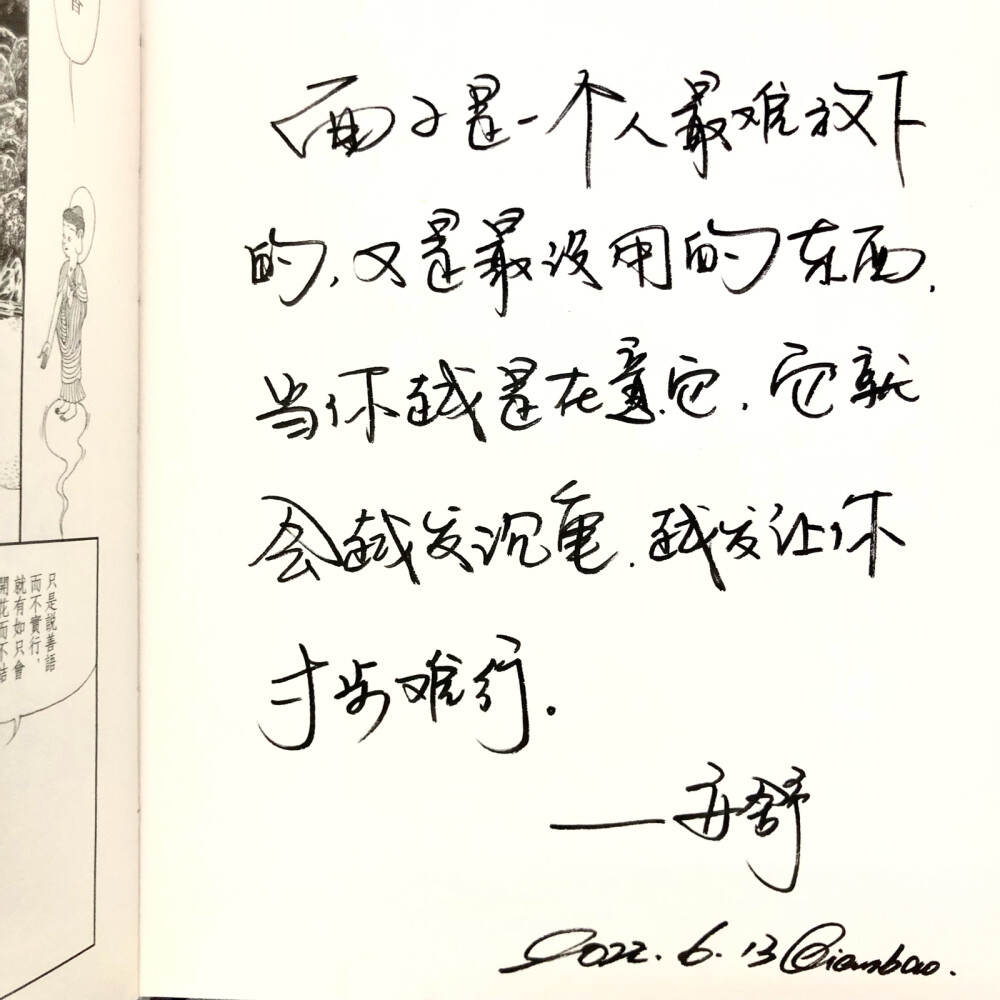 面子是一个人最难放下
的,又是最没用的东西.
当你越是在意它,它就
会越发沉重.越发让你
寸步难行.
——亦舒
2022.6.13@Qianbao.
只是說善語
而不實行,
就有如只會
開花而不結